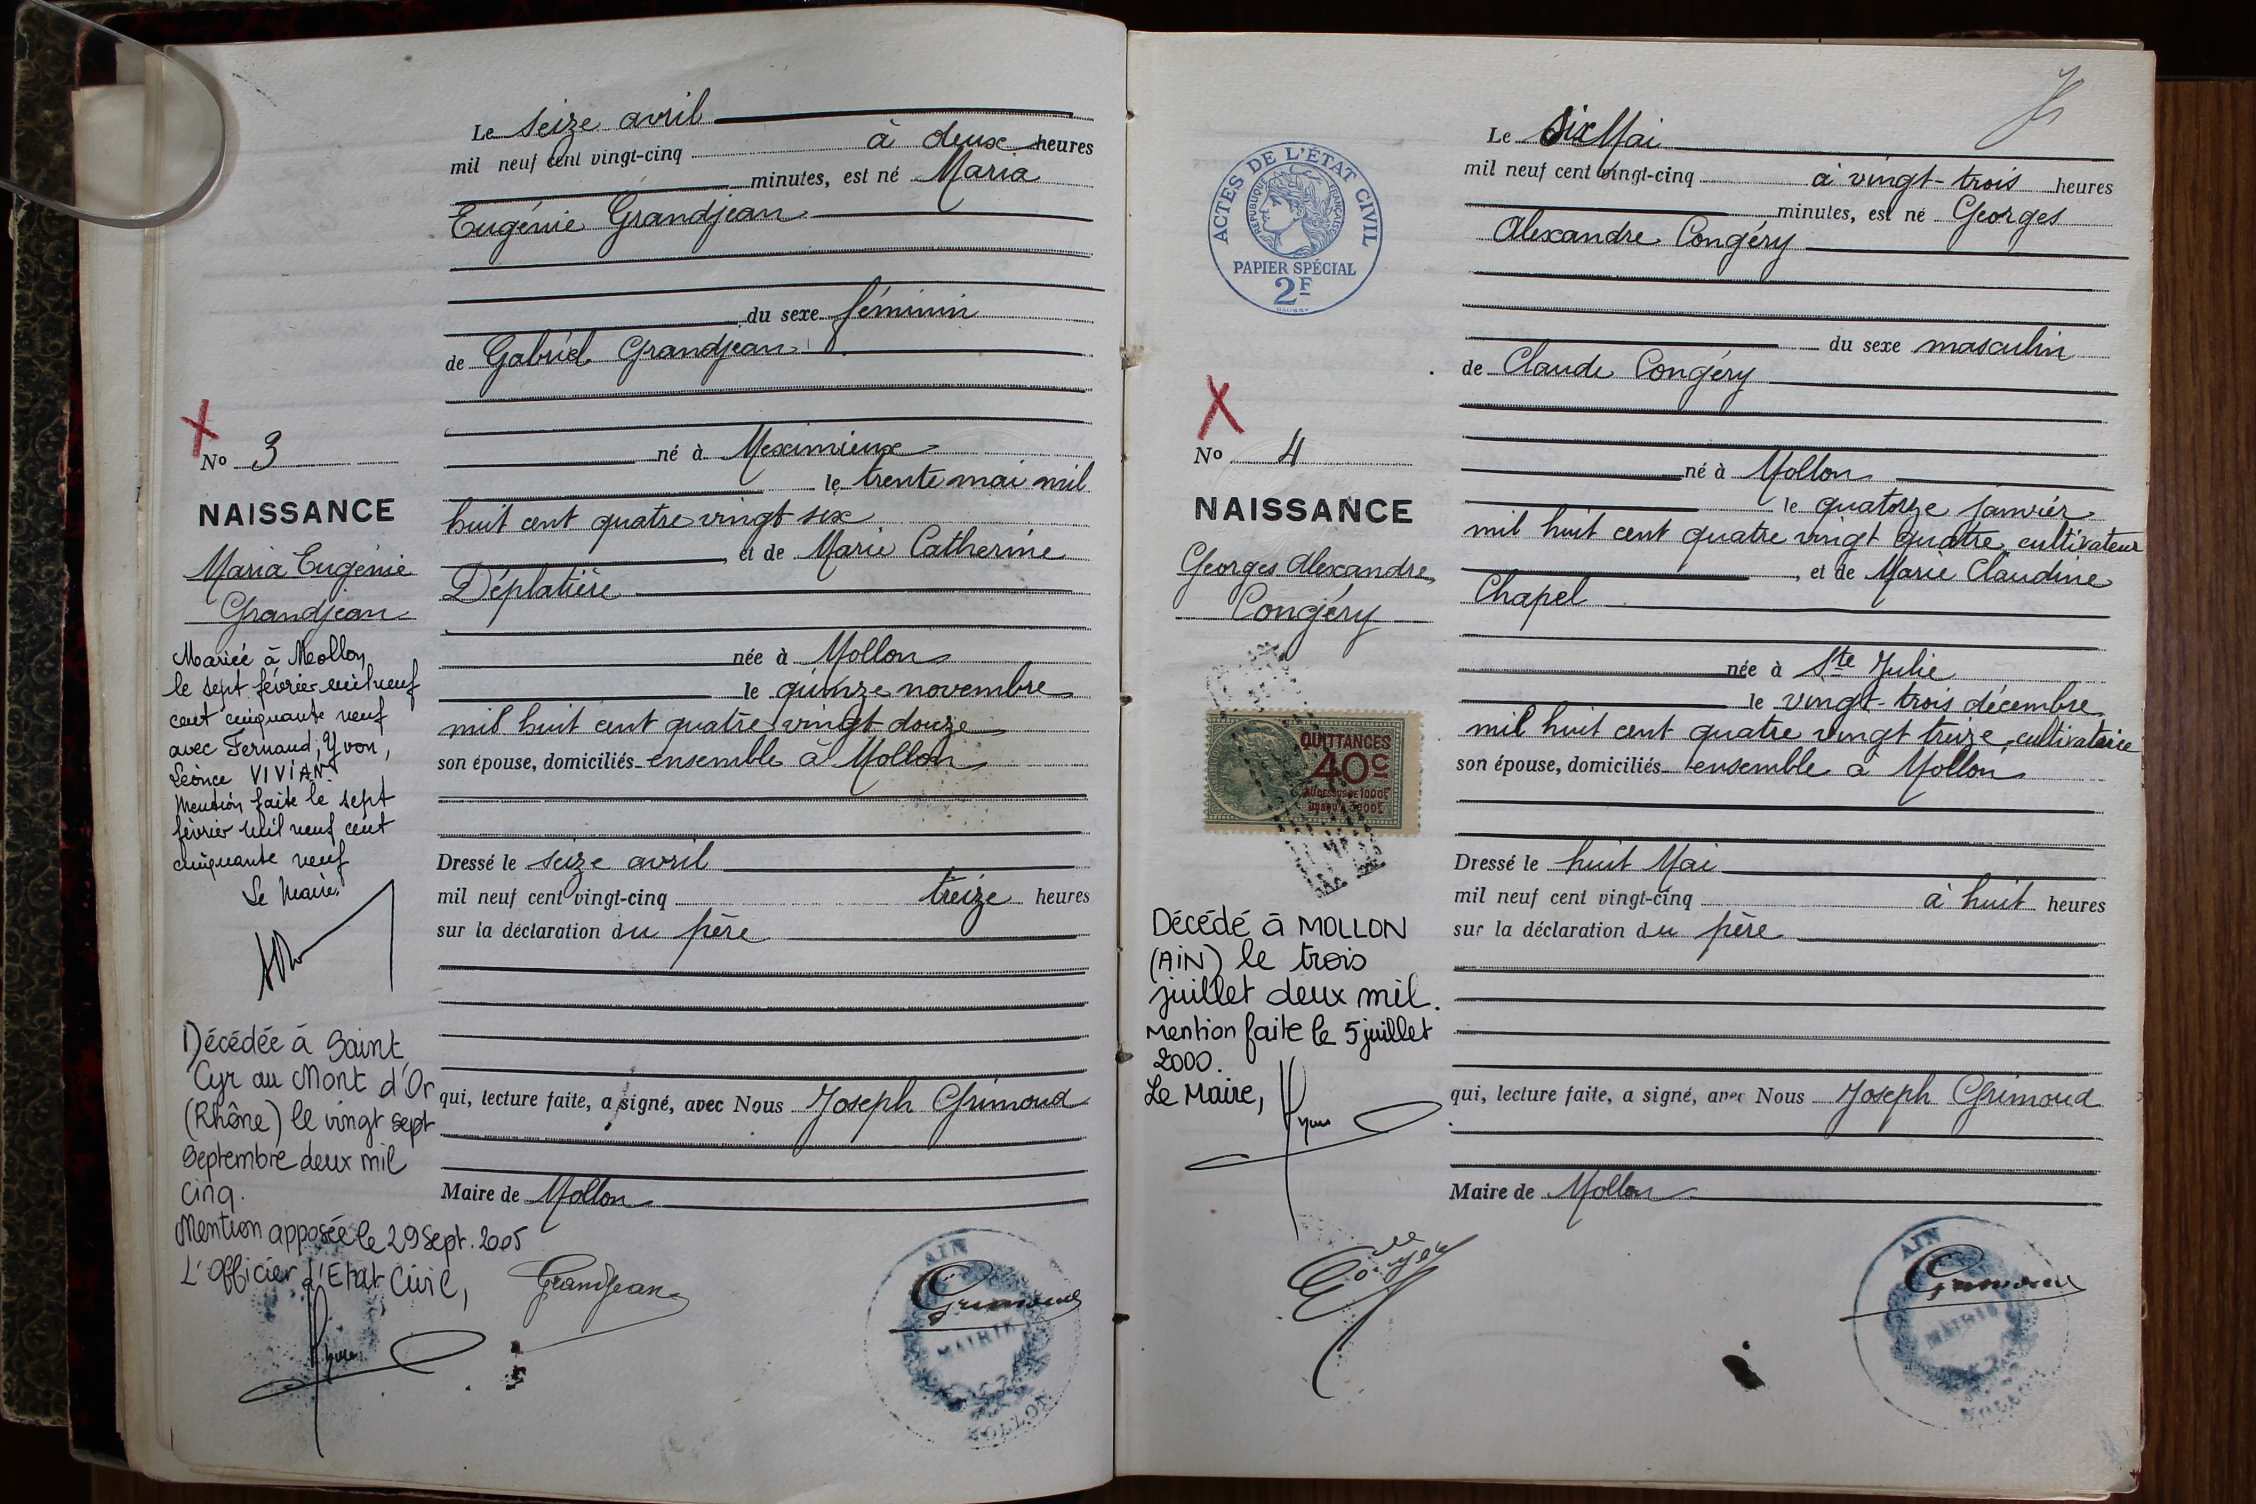 Le seize avril
mil neuf cent vingt-cinq à deux heures
minutes, est né Maria
Eugénie Grandjean
du sexe féminin
de Gabriel Grandjean
né à Meximieux
le trente mai mil
huit cent quatre vingt six
, et de Marie Catherine
Déplatière
née à Mollon
le quinze novembre
mil huit cent quatre vingt douze
son épouse, domiciliés ensemble à Mollon
Dressé le seize avril
mil neuf cent vingt-cinq treize heures
sur la déclaration du père
qui, lecture faite, a signé, avec Nous Joseph Grimoud
Maire de Mollon
No 3
NAISSANCE
Maria Eugénie
Grandjean
Mariée à Mollon
le sept février mil neuf
cent cinquante neuf
avec Fernand, Yvon,
Léonce VIVIAN
Mention faite le sept
février mil neuf cent
cinquante neuf
Le Maire,
Décédée à Saint
Cyr au Mont d'Or
(Rhône) le vingt sept
septembre deux mil
cinq.
Mention apposée le 29 sept. 2005
L'Officier d'Etat Civil,
Grandjean
Grimoud
AIN
MAIRIE
MOLLON
Le Six Mai
mil neuf cent vingt-cinq à vingt-trois heures
minutes, est né Georges
Alexandre Congéry
du sexe masculin
de Claude Congéry
né à Mollon
le quatorze janvier
mil huit cent quatre vingt quatre, cultivateur
, et de Marie Claudine
Chapel
née à Ste Julie
le vingt-trois décembre
mil huit cent quatre vingt treize, cultivatrice
son épouse, domiciliés ensemble à Mollon
Dressé le huit Mai
mil neuf cent vingt-cinq à huit heures
sur la déclaration du père
qui, lecture faite, a signé, avec Nous Joseph Grimoud
Maire de Mollon
ACTES DE L'ÉTAT CIVIL
RÉPUBLIQUE FRANÇAISE
PAPIER SPÉCIAL
2F
No 4
NAISSANCE
Georges Alexandre
Congéry
QUITTANCES
40c
AU DESSUS DE 1000F
JUSQU'À 3000F
Décédé à MOLLON
(AIN) le trois
juillet deux mil.
Mention faite le 5 juillet
2000.
Le Maire,
Grimoud
AIN
MAIRIE
MOLLON